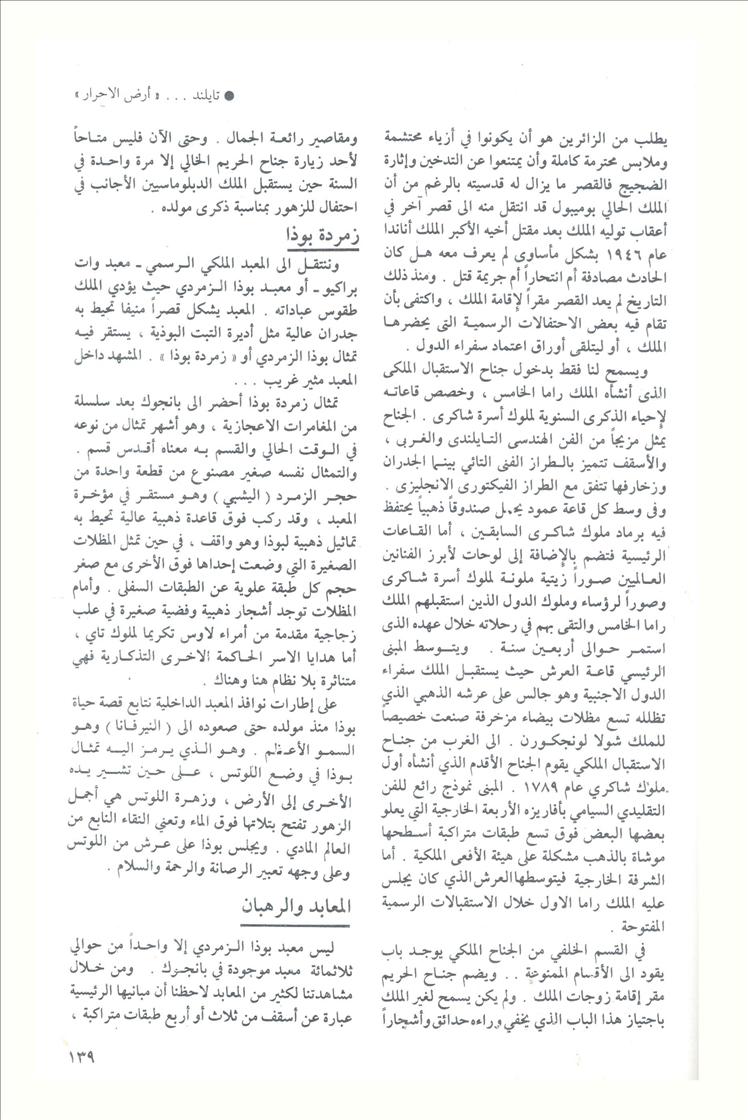 ● تايلند ... « أرض الاحرار »
يطلب من الزائرين هو أن يكونوا في أزياء محتشمة
وملابس محترمة كاملة وأن يمتنعوا عن التدخين وإثارة
الضجيج فالقصر ما يزال له قدسيته بالرغم من أن
الملك الحالي بوميبول قد انتقل منه الى قصر آخر في
أعقاب توليه الملك بعد مقتل أخيه الأكبر الملك أناندا
عام ١٩٤٦ بشكل مأساوى لم يعرف معه هل كان
الحادث مصادفة أم انتحاراً أم جريمة قتل . ومنذ ذلك
التاريخ لم يعد القصر مقراً لإقامة الملك ، واكتفى بأن
تقام فيه بعض الاحتفالات الرسمية التى يحضرها
الملك ، أو ليتلقى أوراق اعتماد سفراء الدول .
ويسمح لنا فقط بدخول جناح الاستقبال الملكى
الذى أنشأه الملك راما الخامس ، وخصص قاعاته
لإحياء الذكرى السنوية لملوك أسرة شاكرى . الجناح
يمثل مزيجاً من الفن الهندسى التايلندى والغربى ،
والأسقف تتميز بالطراز الفنى التائي بينما الجدران
وزخارفها تتفق مع الطراز الفيكتورى الانجليزى .
وفى وسط كل قاعة عمود يحمل صندوقاً ذهبياً يحتفظ
فيه برماد ملوك شاكرى السابقين ، أما القاعات
الرئيسية فتضم بالإضافة إلى لوحات لأبرز الفنانين
العالميين صوراً زيتية ملونة لملوك أسرة شاكرى
وصوراً لرؤساء وملوك الدول الذين استقبلهم الملك
راما الخامس والتقى بهم في رحلاته خلال عهده الذى
استمر حوالى أربعين سنة . ويتوسط المبنى
الرئيسي قاعة العرش حيث يستقبل الملك سفراء
الدول الاجنبية وهو جالس على عرشه الذهبي الذي
تظلله تسع مظلات بيضاء مزخرفة صنعت خصيصاً
للملك شولا لونجكورن . الى الغرب من جناح
الاستقبال الملكي يقوم الجناح الأقدم الذي أنشأه أول
ملوك شاكري عام ١٧٨٩ . المبنى نموذج رائع للفن
التقليدي السيامي بأفاريزه الأربعة الخارجية التي يعلو
بعضها البعض فوق تسع طبقات متراكبة أسطحها
موشاة بالذهب مشكلة على هيئة الأفعى الملكية . أما
الشرفة الخارجية فيتوسطها العرش الذي كان يجلس
عليه الملك راما الاول خلال الاستقبالات الرسمية
المفتوحة .
في القسم الخلفي من الجناح الملكي يوجد باب
يقود الى الأقسام الممنوعة .. ويضم جناح الحريم
مقر إقامة زوجات الملك . ولم يكن يسمح لغير الملك
باجتياز هذا الباب الذي يخفي وراءه حدائق وأشجاراً
ومقاصير رائعة الجمال . وحتى الآن فليس متاحاً
لأحد زيارة جناح الحريم الخالي إلا مرة واحدة في
السنة حين يستقبل الملك الدبلوماسيين الأجانب في
احتفال للزهور بمناسبة ذكرى مولده .
زمردة بوذا
وننتقل الى المعبد الملكي الرسمي ـ معبد وات
براكيو ـ أو معبد بوذا الزمردي حيث يؤدي الملك
طقوس عباداته . المعبد يشكل قصراً منيفا تحيط به
جدران عالية مثل أديرة التبت البوذية ، يستقر فيه
تمثال بوذا الزمردي أو « زمردة بوذا » . المشهد داخل
المعبد مثير غريب ...
تمثال زمردة بوذا أحضر الى بانجوك بعد سلسلة
من المغامرات الاعجازية ، وهو أشهر تمثال من نوعه
في الوقت الحالي والقسم به معناه أقدس قسم .
والتمثال نفسه صغير مصنوع من قطعة واحدة من
حجر الزمرد ( اليشبي ) وهو مستقر في مؤخرة
المعبد ، وقد ركب فوق قاعدة ذهبية عالية تحيط به
تماثيل ذهبية لبوذا وهو واقف ، في حين تمثل المظلات
الصغيرة التي وضعت إحداها فوق الأخرى مع صغر
حجم كل طبقة علوية عن الطبقات السفلى . وأمام
المظلات توجد أشجار ذهبية وفضية صغيرة في علب
زجاجية مقدمة من أمراء لاوس تكريما لملوك تاي ،
أما هدايا الاسر الحاكمة الاخرى التذكارية فهي
متناثرة بلا نظام هنا وهناك .
على إطارات نوافذ المعبد الداخلية نتابع قصة حياة
بوذا منذ مولده حتى صعوده الى ( النيرفانا ) وهو
السمو الأعظم . وهو الذي يرمز اليه تمثال
بوذا في وضع اللوتس ، على حين تشير يده
الأخرى إلى الأرض ، وزهرة اللوتس هي أجمل
الزهور تفتح بتلاتها فوق الماء وتعني النقاء النابع من
العالم المادي . ويجلس بوذا على عرش من اللوتس
وعلى وجهه تعبير الرصانة والرحمة والسلام .
المعابد والرهبان
ليس معبد بوذا الزمردي إلا واحداً من حوالي
ثلاثمائة معبد موجودة في بانجوك . ومن خلال
مشاهدتنا لكثير من المعابد لاحظنا أن مبانيها الرئيسية
عبارة عن أسقف من ثلاث أو أربع طبقات متراكبة ،
١٣٩